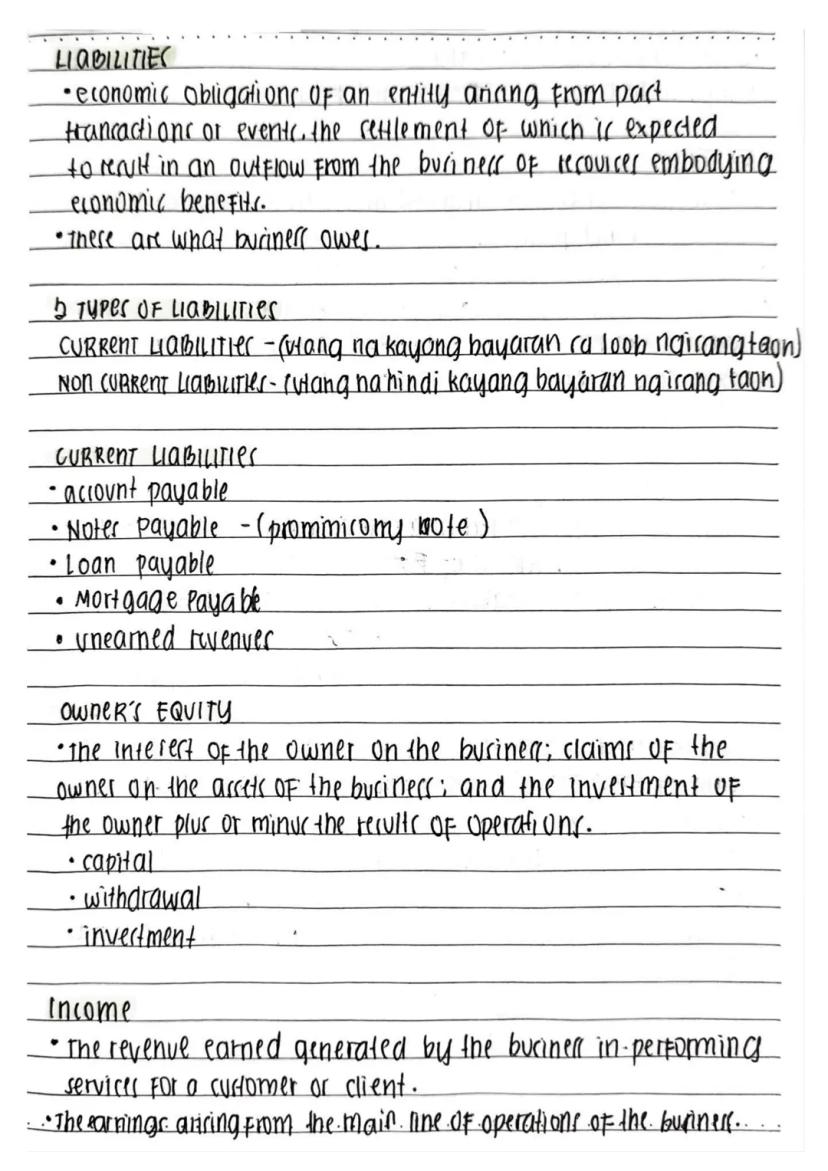 LIABILITIES
• economic obligations of an entity arising from past
transactions or events, the settlement of which is expected
to result in an outflow from the business of resources embodying
economic benefits.
• These are what business owes.
2 TYPES OF LIABILITIES
CURRENT LIABILITIES - (utang na kayang bayaran sa loob ng isang taon)
NON CURRENT LIABILITIES - (utang na hindi kayang bayaran ng isang taon)
CURRENT LIABILITIES
• account payable
• Notes payable - (prommisorry note)
• Loan payable
• Mortgage Payable
• unearned revenues
OWNER'S EQUITY
• The interest of the owner on the business; claims of the
owner on the assets of the business; and the investment of
the owner plus or minus the results of operations.
• capital
• withdrawal
• investment
Income
• The revenue earned generated by the business in performing
services for a customer or client.
• The earnings arising from the main line of operations of the business.